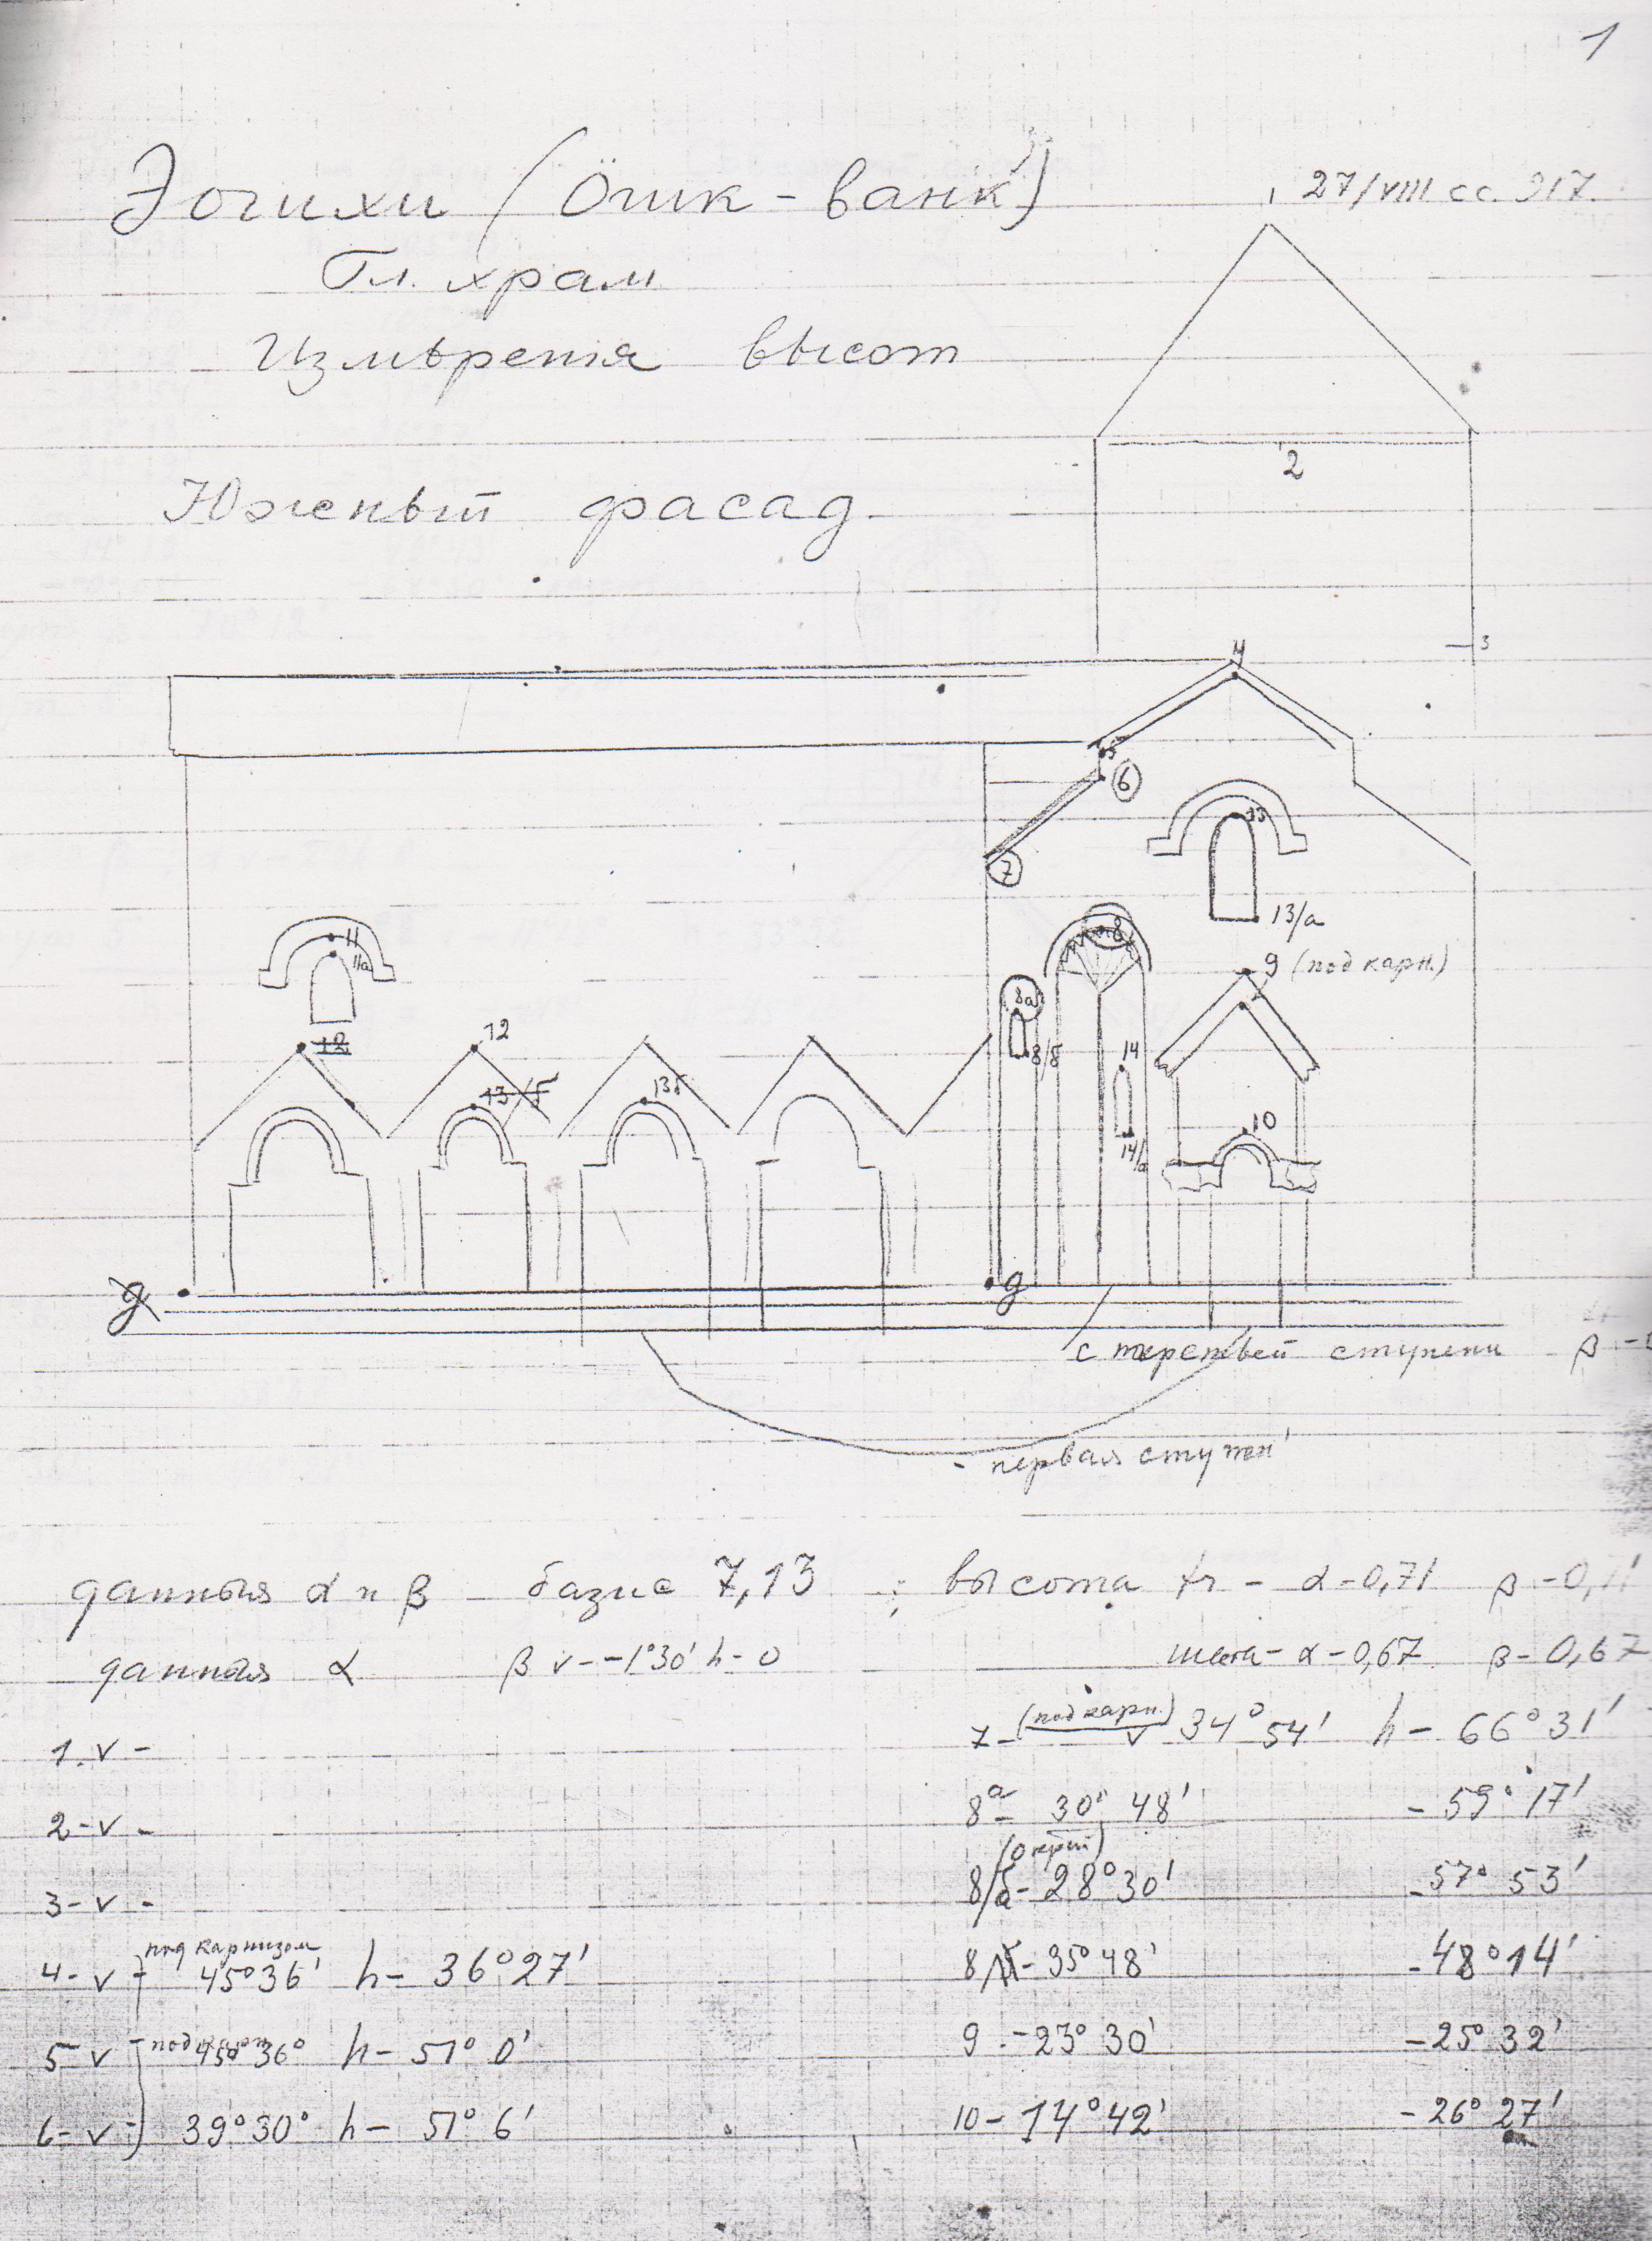 1
Эогихи (Öгик-ванк)
27/VIII 917.
Гл. храм
Измѣренія высот
Южный фасад
2
3
4
5
6
7
13
13/а
8
9 (под карн.)
11
11а
8а
8/б
12
12
14
13/б
13б
14/а
10
g
g
с третьей ступени β -
- первая ступен
данныя α и β - базис 7,13 ; высота tr - α-0,71 β-0,71
данныя α β v--1°30' h-0
α-0,67 β-0,67
1. v -
7- (под карн.) v 34° 54' h- 66°31'
2-v -
8а- 30° 48' - 59° 17'
3- v -
8/б- 28°30' - 57° 53'
4- v - под карнизом 45°36' h- 36°27'
8 - 35°48' - 48°14'
5- v - 45°36° h- 51° 0'
9 - 23° 30' - 25° 32'
6- v - 39°30° h- 51° 6'
10- 14°42' - 26° 27'